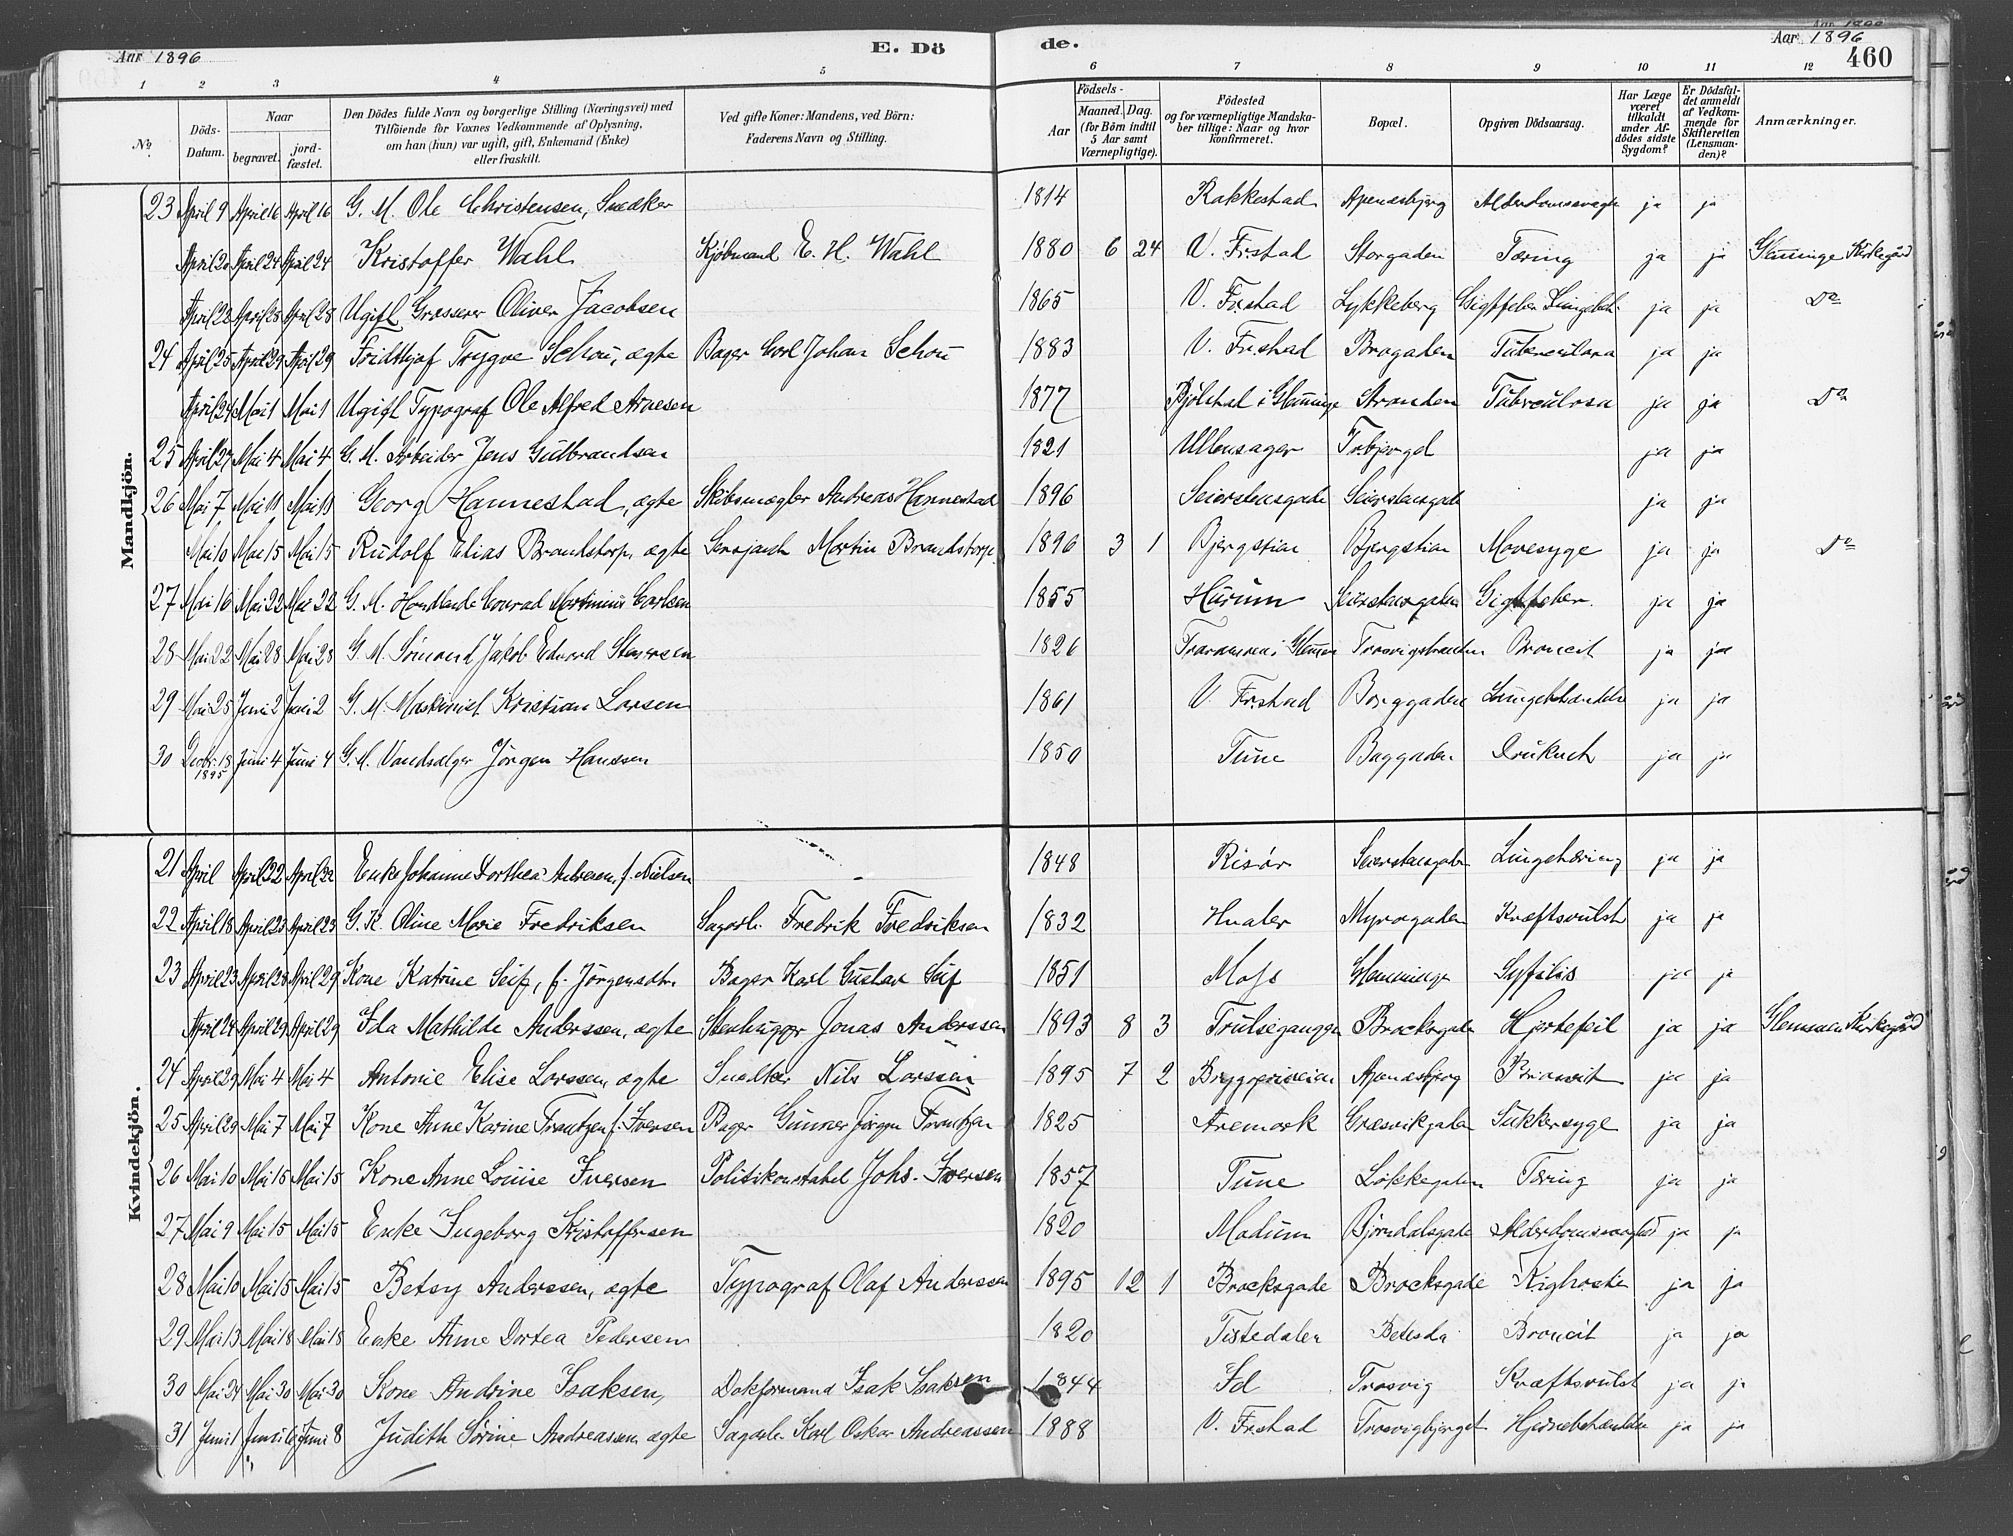 Aar 1896 E. Dö
de. Aar 1896 460
1 2 3 4 5 6 7 8 9 10 11 12
No. Döds-Datum. Naar begravet. jord-fæstet. Den Dödes fulde Navn og borgerlige Stilling (Næringsvei) med Tilföiende for Voxnes Vedkommende af Oplysning, om han (hun) var ugift, gift, Enkemand (Enke) eller fraskilt. Ved gifte Koner: Mandens, ved Börn: Faderens Navn og Stilling. Aar Födsels- Maaned. Dag. (for Börn indtil 5 Aar samt Værnepligtige). Födested og for værnepligtige Mandskaber tillige: Naar og hvor konfirmeret. Bopæl. Opgiven Dödsaarsag. Har Læge været tilkaldt under Afdödes sidste Sygdom? Er Dödsfaldet anmeldt af Vedkommende for Skifteretten (Lensmanden)? Anmærkninger.
Mandkjön.
23 April 9 April 16 April 16 G. M. Ole Christensen, Snedker 1814 Rakkestad Apenæsbjerg ja ja
April 20 April 24 April 24 Kristoffer Wahl Kjöbmand E. H. Wahl 1880 6 24 V. Frstad Storgaden Tæring ja ja Glemminge Kirkegård
April 23 April 28 April 28 Ugift Grosserer Oliver Jacobsen 1865 V. Frstad Lykkeberg Gigtfeber ja ja Do
24 April 25 April 29 April 29 Fridthjof Trygve Schou, ægte Bager Carl Johan Schou 1883 V. Frstad Brogaden Tuberculosa ja ja
April 24 Mai 1 Mai 1 Ugift Typograf Ole Alfred Arnesen 1877 Bjölstad i Glemminge Stranden Tuberculosa ja ja Do
25 April 27 Mai 4 Mai 4 G. M. Arbeider Jens Gulbrandsen 1821 Ullensager ja ja
26 Mai 7 Mai 11 Mai 11 Georg Hannestad, ægte Skibsmægler Andreas Hannestad 1896 Seierstensgade Seierstensgade ja ja
Mai 10 Mai 15 Mai 15 Rudolf Elias Brandstorp, ægte Sersjant Martin Brandstorp 1896 3 1 Bjergstien Bjergstien Mavesyge ja ja Do
27 Mai 16 Mai 22 Mai 22 G. M. Handlende Conrad Martinius Carlsen 1855 Hurum Seierstensgaden Gigtfeber. ja ja
28 Mai 22 Mai 28 Mai 28 G. M. Sömand Jakob Edvard 1826 Trosvigstranden Broncit ja ja
29 Mai 25 Juni 2 Juni 2 G. M. Maskinist Kristian Larsen 1861 V. Frstad Borggaden Lungebetændelse ja ja
30 Decbr. 18 1895 Juni 4 Juni 4 G. M. Vandsælger Jörgen Hanssen 1850 Tune Baggaden Druknet ja ja
Kvindekjön.
21 April April 22 April 22 Enke Johanne Dorthea Andresen, f. Nielsen 1848 Risör Seierstensgaden Lungetæring ja ja
22 April 18 April 23 April 23 G. K. Oline Marie Fredriksen Sagarb. Fredrik Fredriksen 1832 Hvaler Myragaden Kræftsvulst ja ja
23 April 23 April 28 April 29 Kone Katrine Seif, f. Jörgensdtr. Bager Karl Gustav Seif 1851 Moss Glemminge Syfilis ja ja
April 24 April 29 April 29 Ida Mathilde Anderssen, ægte Stenhugger Jonas Anderssen 1893 8 3 Brocksgaden Hjertefeil ja ja Glemmen Kirkegård
24 April 29 Mai 4 Mai 4 Antonie Elise Larssen, ægte Snedker Nils Larssen 1895 7 2 Bryggeriveien Apenæsbjerg ja ja
25 April 29 Mai 7 Mai 7 Kone Anne Karine Frantzen f. Iversen Bager Gunner Jörgen Frantzen 1825 Aremark Græsvikgaden Sukkersyge ja ja
26 Mai 10 Mai 15 Mai 15 Kone Anne Louise Iversen Politikonstabel Johs. Iversen 1857 Tune Lökkegaden Tæring ja ja
27 Mai 9 Mai 15 Mai 15 Enke Ingeborg Kristoffersen 1820 Modum Björndalsgade Alderdomssvaghed ja ja
28 Mai 10 Mai 15 Mai 15 Betsy Anderssen, ægte Typograf Olaf Anderssen 1895 12 1 Brocksgade Brocksgade Kighoste ja ja
29 Mai 13 Mai 18 Mai 18 Enke Anne Dortea Pedersen 1820 Tistedalen Betesda Broncit ja ja
30 Mai 24 Mai 30 Mai 30 Kone Andrine Isaksen, Dokformand Isak Isaksen 1844 Id Trosvig Kræftsvulst ja ja
31 Juni 1 Juni 6 Juni 8 Judith Sörine Andreassen, ægte Sagarb. Karl Oskar Andreassen 1888 V. Frstad Trosvigbjerget Hjernebetændelse ja ja